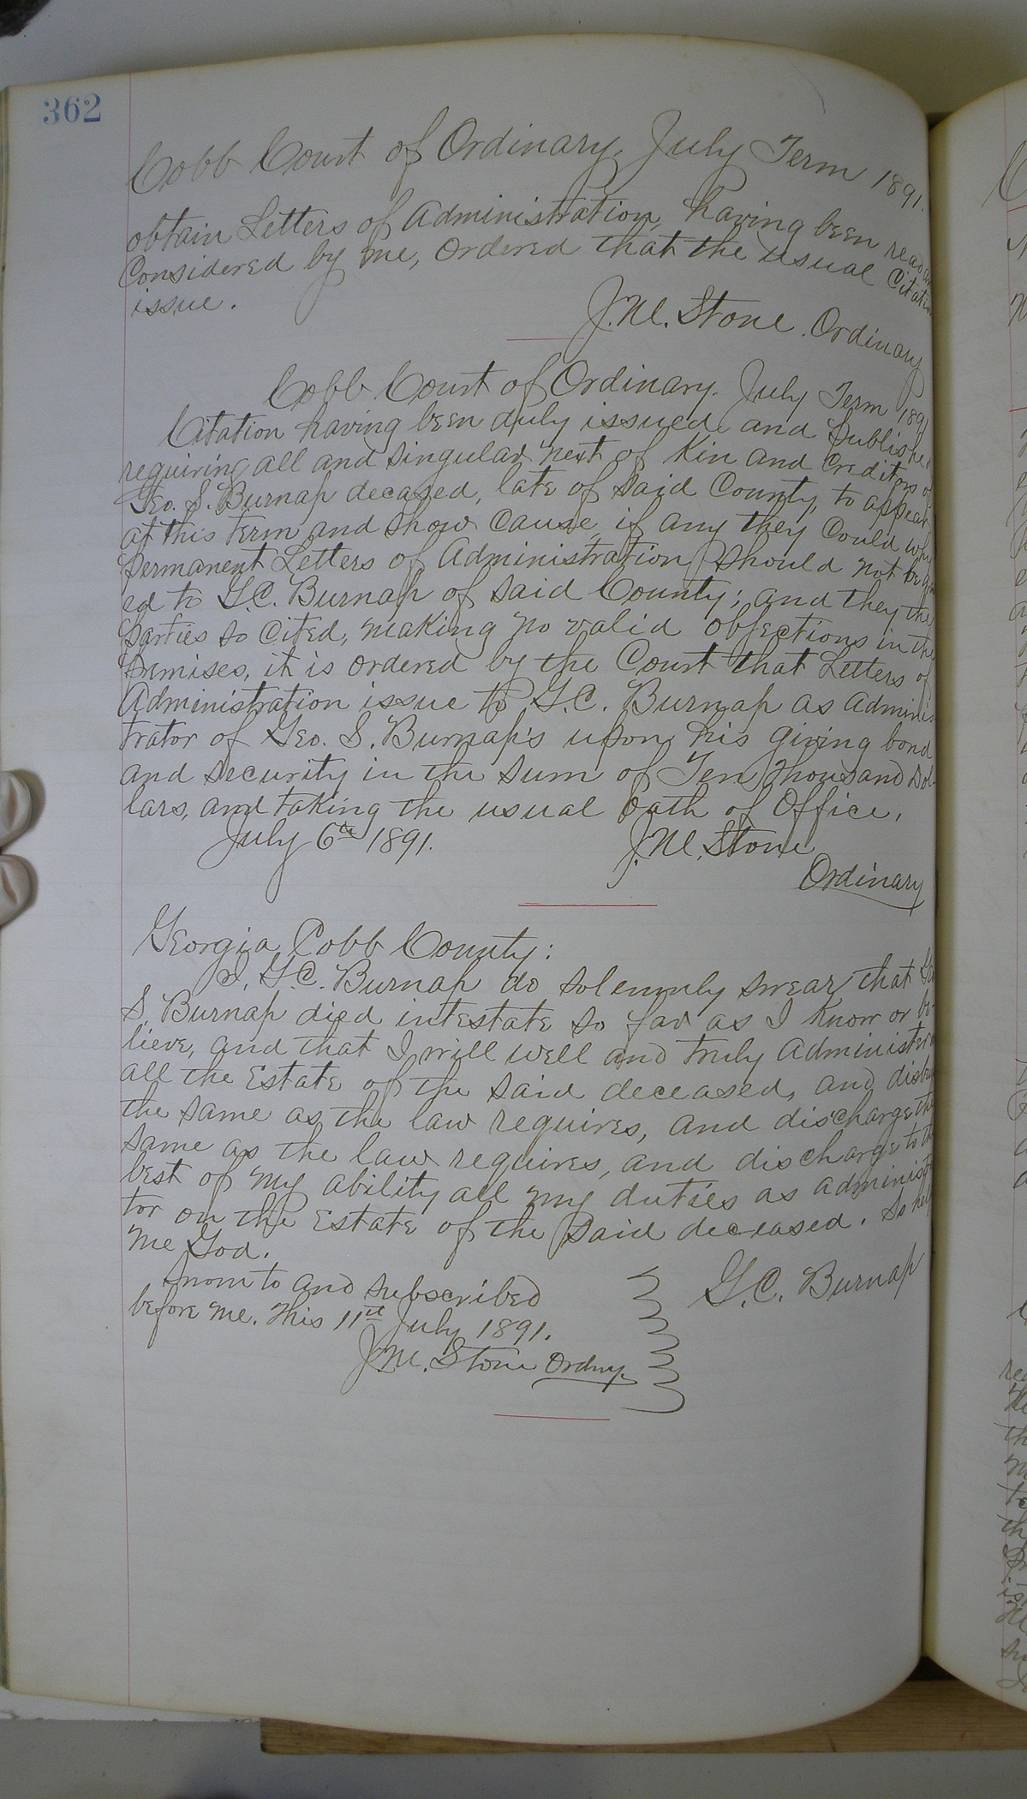 362
Cobb Court of Ordinary, July Term 1891.
obtain Letters of Administration, having been read an
Considered by me, Ordered that the usual Citation
issue.
J. M. Stone. Ordinary
Cobb Court of Ordinary. July Term 189
Citation having been duly issued and Published
requiring all and singular next of Kin and Creditors of
Geo. S. Burnap decased, late of said County, to appear
at this term and show Cause, if any they Could why
permanent Letters of Administration should not be
ed to G.C. Burnap of said County; and they the
parties so Cited, making no valid objections in the
premises, it is ordered by the Court that Letters of
Administration issue to G.C. Burnap as Adminis
trator of Geo. S. Burnap's upon his giving bond
and security in the sum of Ten Thousand Dol-
lars, and taking the usual Oath of Office.
July 6th 1891. J. M. Stone
Ordinary
Georgia, Cobb County:
I, G.C. Burnap do solemnly swear that Geo
S. Burnap died intestate so far as I know or be-
lieve, and that I will well and truly Administer
all the Estate of the said deceased, and distri
the same as the law requires, and discharge the
same as the law requires, and discharge to the
best of my ability all my duties as administ
tor on the Estate of the said deceased. So help
me God.
Sworn to and subscribed
before me. This 11th July 1891. G.C. Burnap
J. M. Stone Ordny.